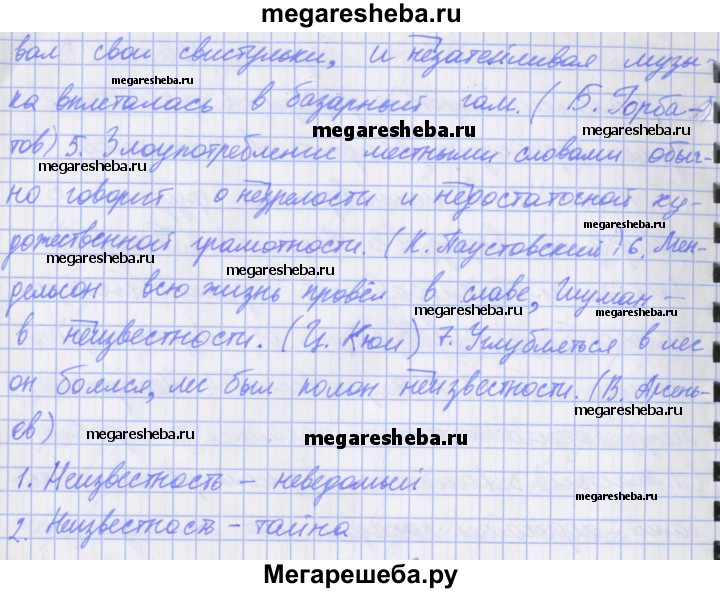 megaresheba.ru
вал свои свистульки, и незатейливая музы-
megaresheba.ru
megaresheba.ru
ка вплеталась в базарный гам. (Б. Горба-
megaresheba.ru
megaresheba.ru
тов) 5. Злоупотребление местными словами обыч-
megaresheba.ru
но говорит о незрелости и недостаточной ху-
megaresheba.ru
дожественной грамотности. (К. Паустовский) 6. Мен-
megaresheba.ru
megaresheba.ru
дельсон всю жизнь провёл в славе, Шуман —
megaresheba.ru
megaresheba.ru
в неизвестности. (Ц. Кюи) 7. Углубляться в лес
он боялся, лес был полон неизвестности. (В. Арсень-
megaresheba.ru
ев)
megaresheba.ru
megaresheba.ru
1. Неизвестность – неведомый
megaresheba.ru
2. Неизвестность – тайна
megaresheba.ru
Мегарешеба.ру